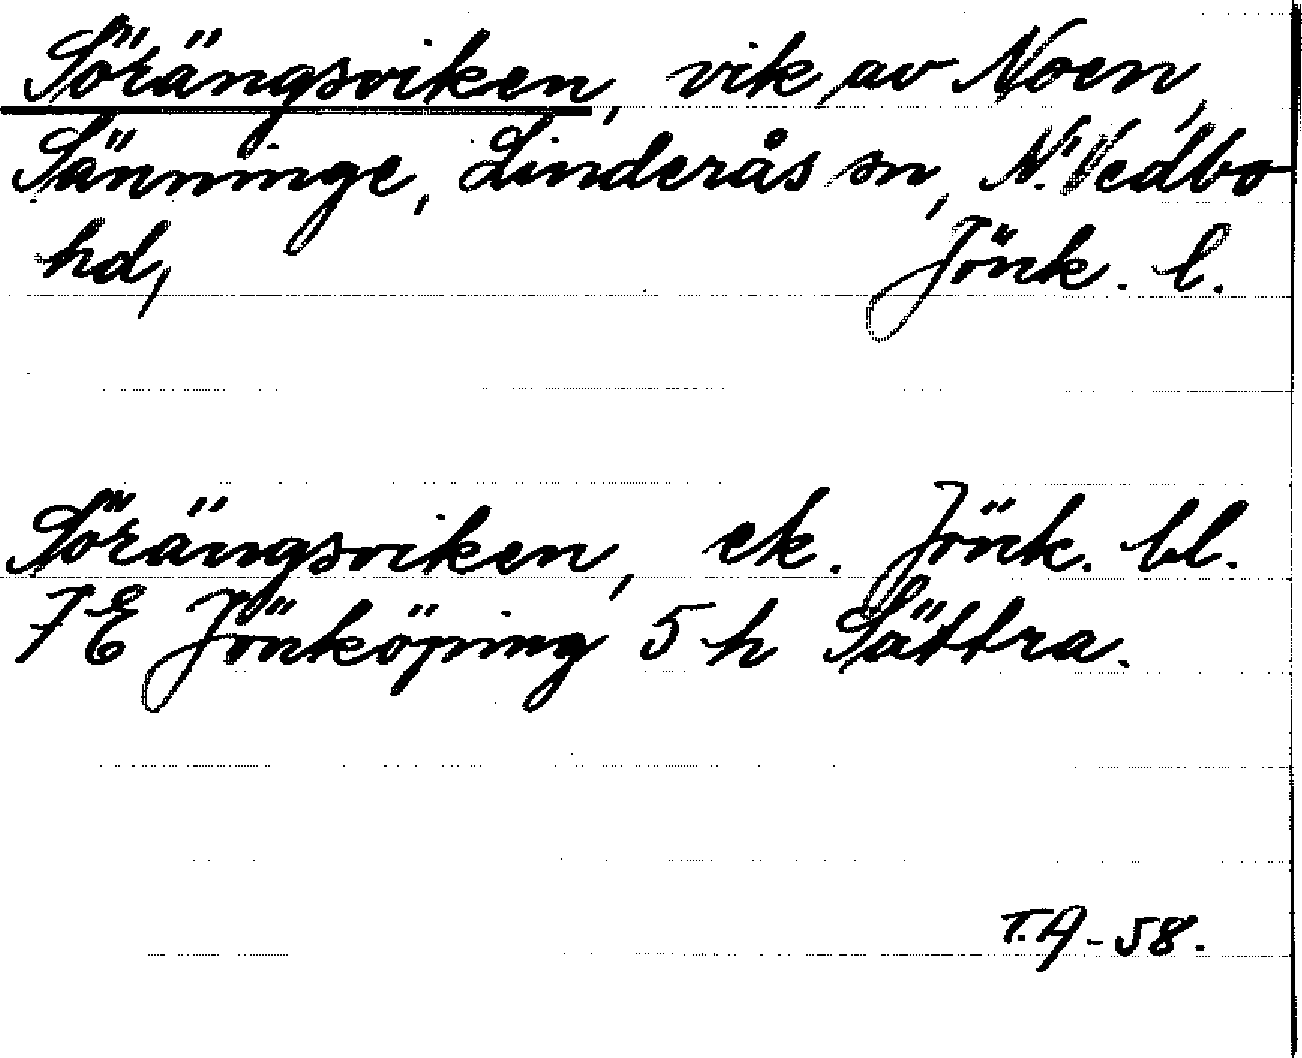 Sörängsviken, vik av Noen,
Sänninge, Linderås sn, N. Vedbo
hd, Jönk. l.
Sörängsviken, ek. Jönk. bl.
7 E Jönköping 5 h Sättra.
T.A-58.